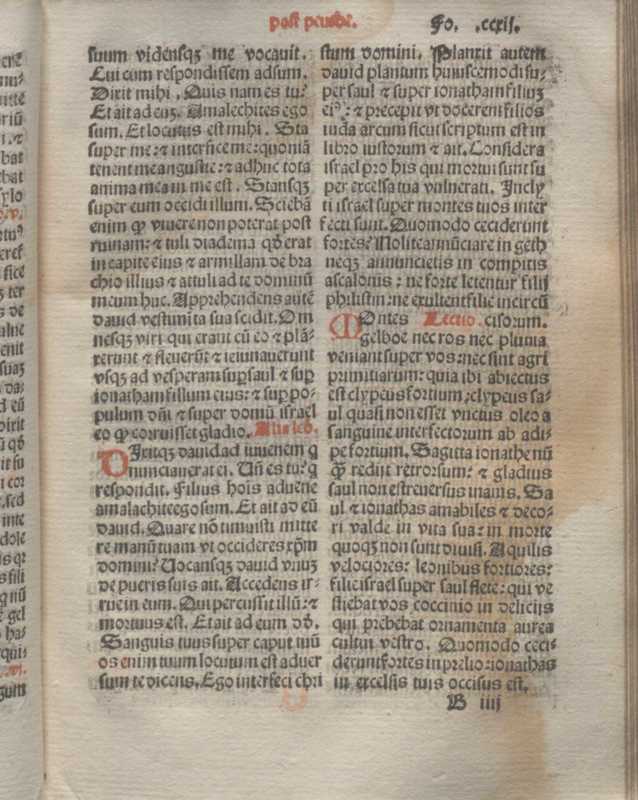 post penthe.
Fo. .ccxij.
suum vidensqꝫ me vocauit.
Cui cum respondissem adsum.
Dixit mihi . Quis nam es tu?
Et ait ad eũ. Amalechites ego
sum. Et locutus est mihi . Sta
super me: ⁊ interfice me: quoniã
tenent me angustie: ⁊ adhuc tota
anima mea in me est . Stansqꝫ
super eum occidi illum . Sciebã
enim ꝙ viuere non poterat post
ruinam: ⁊ tuli diadema qđ erat
in capite eius ⁊ armillam de bra
chio illius ⁊ attuli ad te dominũ
meum huc. Apprehendens autẽ
dauid vestimẽta sua scidit. Om
nesqꝫ viri qui erant cũ eo ⁊ plã-
xerunt ⁊ fleuerũt ⁊ ieiunauerunt
vsqꝫ ad vesperam suꝑ saul ⁊ suꝑ
ionatham filium eius: ⁊ suꝑ po-
pulum dñi ⁊ super domũ israel
eo ꝙ corruisset gladio.
Dixitqꝫ dauid ad iuuenem q
nunciauerat ei. Uñ es tu? q
respondit. Filius hoĩs aduene
amalachite ego sum. Et ait ad eũ
dauid. Quare nõ timuisti mitte
re manũ tuam vt occideres xp̃m
domini? Uocansqꝫ dauid vnuꝫ
de pueris suis ait. Accedens ir-
rue in eum. Qui percussit illũ: ⁊
mortuus est. Et ait ad eum dđ.
Sanguis tuus super caput tuũ
os enim tuum locutum est aduer
sum te dicens. Ego interfeci chri
stum domini. Planxit autem
dauid planctum huiuscemodi su-
per saul ⁊ super ionatham filiuꝫ
eiꝰ: ⁊ precepit vt docerent filios
iuda arcum sicut scriptum est in
libro iustorum ⁊ ait. Considera
israel pro his qui mortui sunt su
per excelsa tua vulnerati. Incly
ti israel super montes tuos inter
fecti sunt. Quomodo ceciderunt
fortes? Nolite annũciare in geth
neqꝫ annuncietis in compitis
ascalonis: ne forte letentur filij
philistijm: ne exultent filie incircũ
Montes Lectio. cisorum.
gelboe nec ros nec pluuia
veniant super vos: nec sint agri
primitiarum: quia ibi abiectus
est clypeus fortium: clypeus sa-
ul quasi non esset vnctus oleo a
sanguine interfectorum ab adi-
pe fortium. Sagitta ionathe nũ
ꝙ̃ redijt retrorsum: ⁊ gladius
saul non est reuersus inanis. Sa
ul ⁊ ionathas amabiles ⁊ deco-
ri valde in vita sua: in morte
quoqꝫ non sunt diuisi. Aquilis
velociores: leonibus fortiores:
filie israel super saul flete: qui ve
stiebat vos coccinio in delicijs
qui prebebat ornamenta aurea
cultui vestro. Quomodo ceci-
derunt fortes in prelio: ionathas
in excelsis tuis occisus est.
B iiij